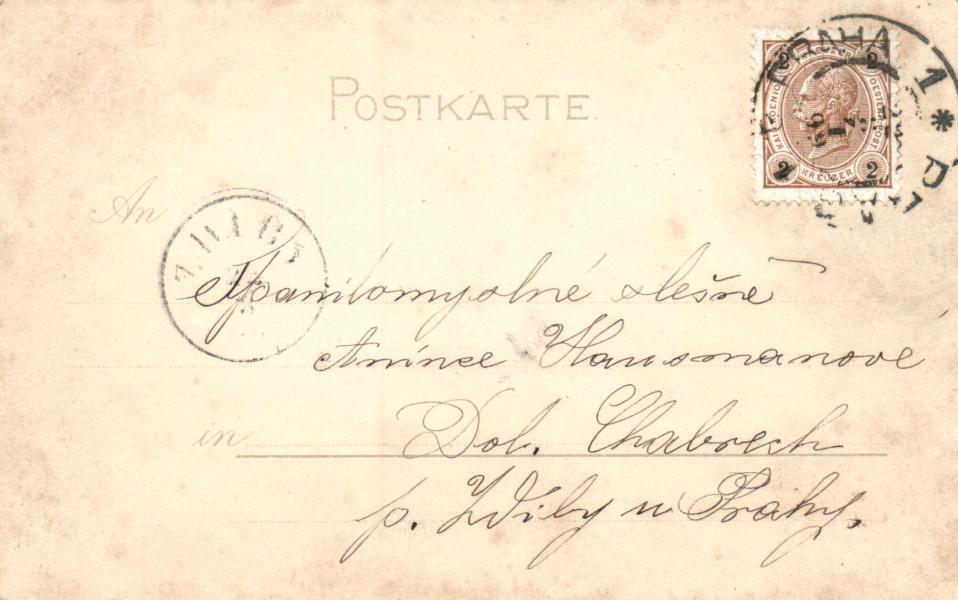 POSTKARTE
2 2
KAIS. KOENIGL. OESTERR. POST
2 KREUZER 2
PRAHA 1
An
Spanilomyslné slešně
Anince Hausmanove
in Dol. Chabrech
p. Zdiby u Prahy.